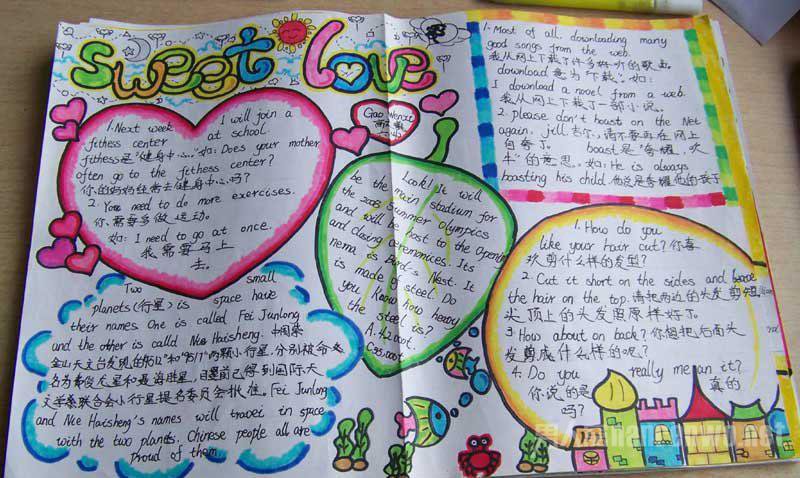 sweet love
Gao Wenzit
1. Next week I will join a
fitness center at school.
fitness是"健身中心。"如: Does your mother
often go to the fitness center?
你的妈妈经常去健身中心吗?
2. You need to do more exercises.
你需要多做运动。
如: I need to go at once.
我需要马上
去。
Look! It will
be the main stadium for
the 2008 Summer Olympics
and will be host to the Opening
and closing ceremonies. Its
nema is Bird's Nest. It
is made of steel. Do
you know how heavy
the steel is?
A. 42000t.
1. Most of all downloading many
good songs from the web.
我从网上下载了许多好听的歌曲。
download 意为"下载"。如:
I download a novel from a web.
我从网上下载了一部小说。
2. please don't boast on the Net
again, jill 吉尔,请不要再在网上
自夸了。 boast是"夸耀、吹
牛"的意思。如: He is always
boosting his child. 他总是夸耀他的孩子
Two small
planets(行星) is space have
their names One is called Fei Junlong
and the other is called Nie Haisheng. 中国紫
金山天文台发现的"9512"和"9517"两颗小行星,分别被命
名为费俊龙星和聂海胜星,目前已得到国际天
文学家联合会小行星提名委员会批准。Fei Junlong
and Nie Haisheng's names will travel in space
with the two planets. Chinese people all are
proud of them
1. How do you
like your hair cut? 你喜
欢剪什么样的发型?
2. Cut it short on the sides and
the hair on the top. 请把两边的头发剪短
头顶上的头发照原样好了。
3. How about on back? 你想把后面头
发剪成什么样的呢?
4. Do you really mean it?
你说的是 真的
吗?